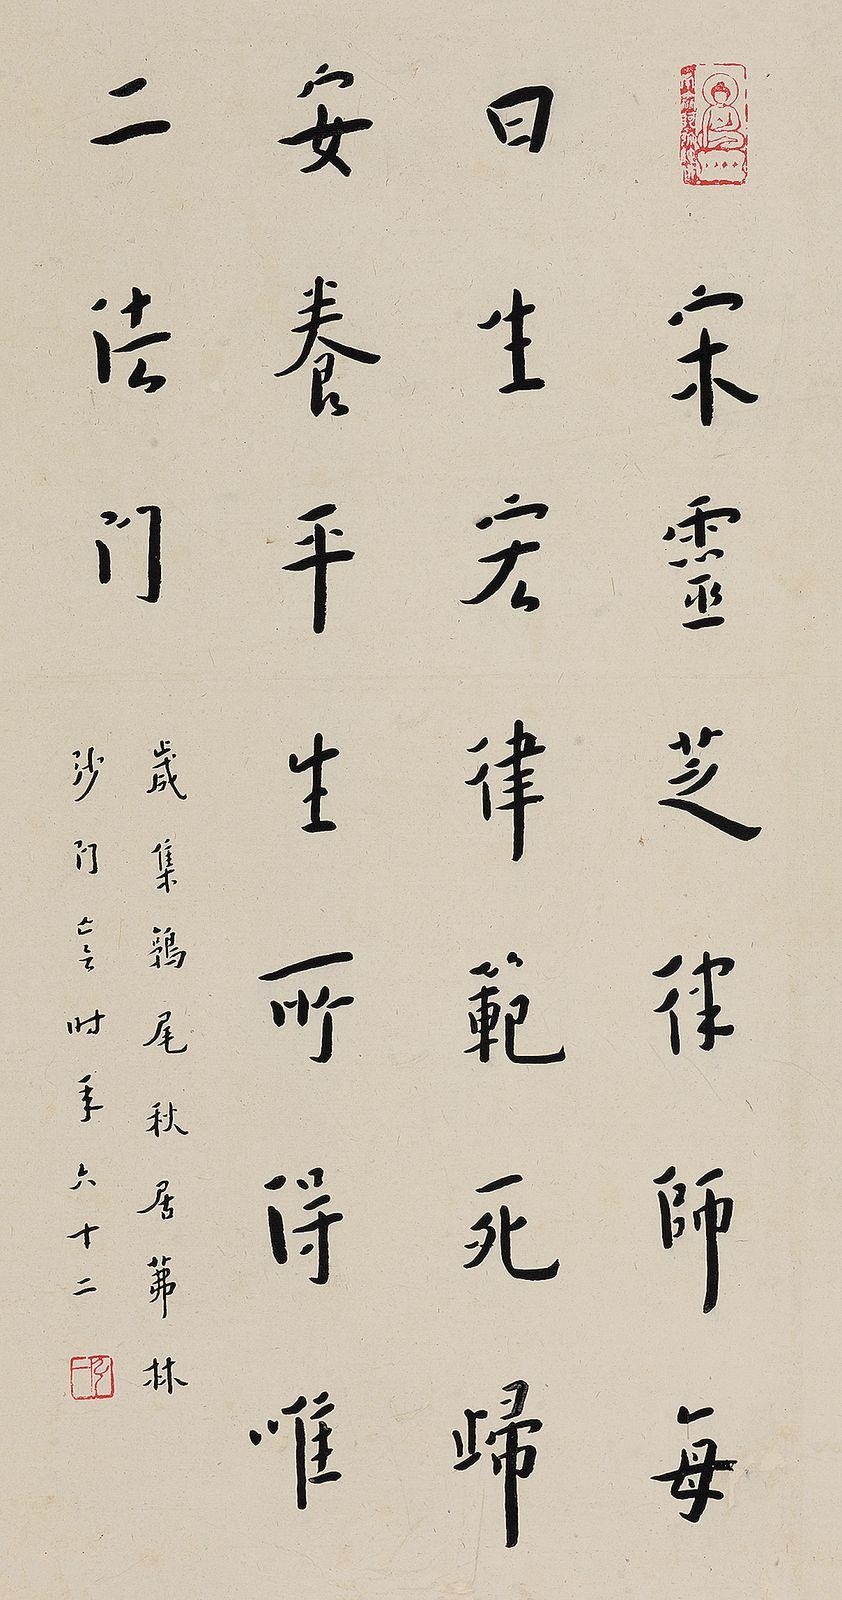 宋靈芝律師每
曰生宏律範死歸
安養平生所得唯
二法门
歲集鶉尾秋居茀林
沙门亡言时年六十二
弘一